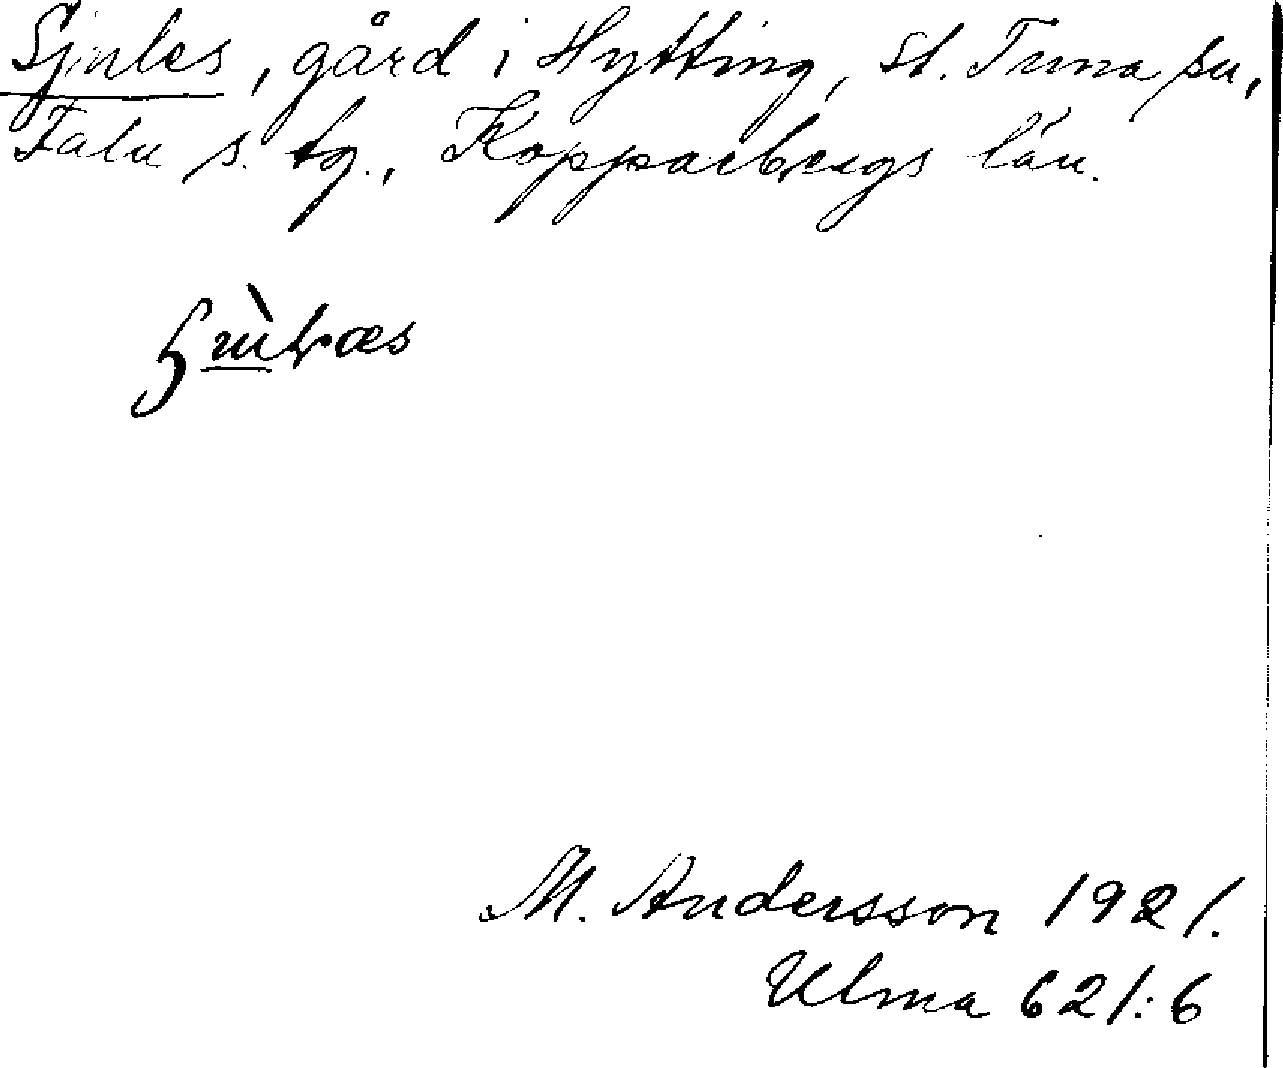 Sjules, gård i Hytting, St. Tuna sn,
Falu s. tg., Kopparbergs län.
M. Andersson 1921.
Ulma 621:6